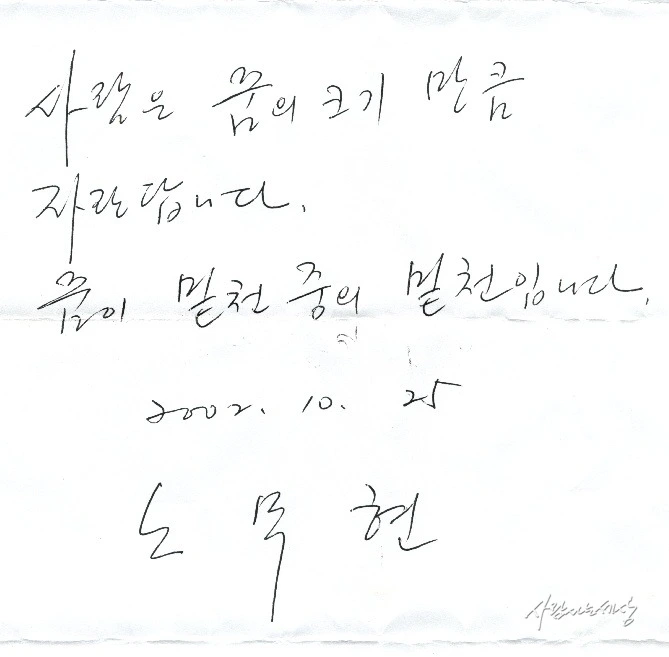 사람은 꿈의 크기 만큼
자란답니다.
꿈이 밑천 중의 밑천입니다.
2002. 10. 25
노무현
사람사는세상